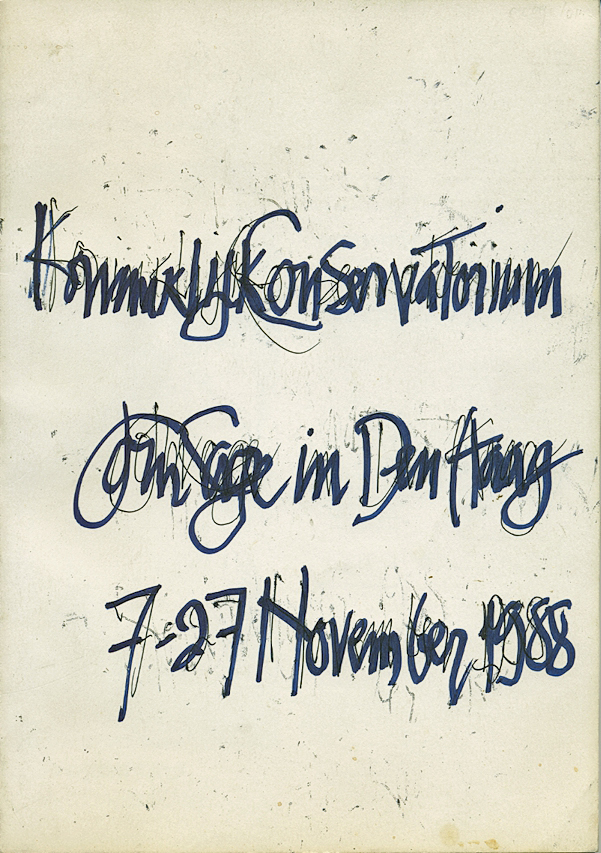 Koninklijk Conservatorium
John Cage in Den Haag
7-27 November 1988